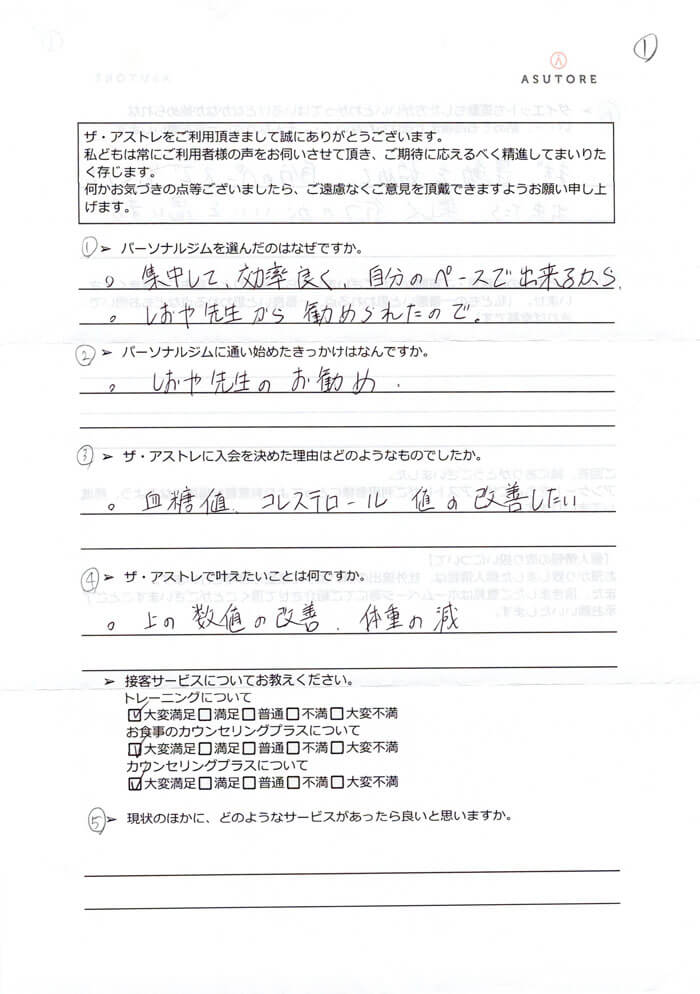 ①
ASUTORE
ザ・アストレをご利用頂きまして誠にありがとうございます。
私どもは常にご利用者様の声をお伺いさせて頂き、ご期待に応えるべく精進してまいりた
く存じます。
何かお気づきの点等ございましたら、ご遠慮なくご意見を頂戴できますようお願い申し上
げます。
① ➢ パーソナルジムを選んだのはなぜですか。
。集中して、効率良く、自分のペースで出来るから。
。しおや先生から勧められたので。
② ➢ パーソナルジムに通い始めたきっかけはなんですか。
。しおや先生のお勧め.
③ ➢ ザ・アストレに入会を決めた理由はどのようなものでしたか。
。血糖値、コレステロール値の改善したい
④ ➢ ザ・アストレで叶えたいことは何ですか。
。上の数値の改善、体重の減
➢ 接客サービスについてお教えください。
トレーニングについて
☑大変満足☐満足☐普通☐不満☐大変不満
お食事のカウンセリングプラスについて
☑大変満足☐満足☐普通☐不満☐大変不満
カウンセリングプラスについて
☑大変満足☐満足☐普通☐不満☐大変不満
⑤ ➢ 現状のほかに、どのようなサービスがあったら良いと思いますか。